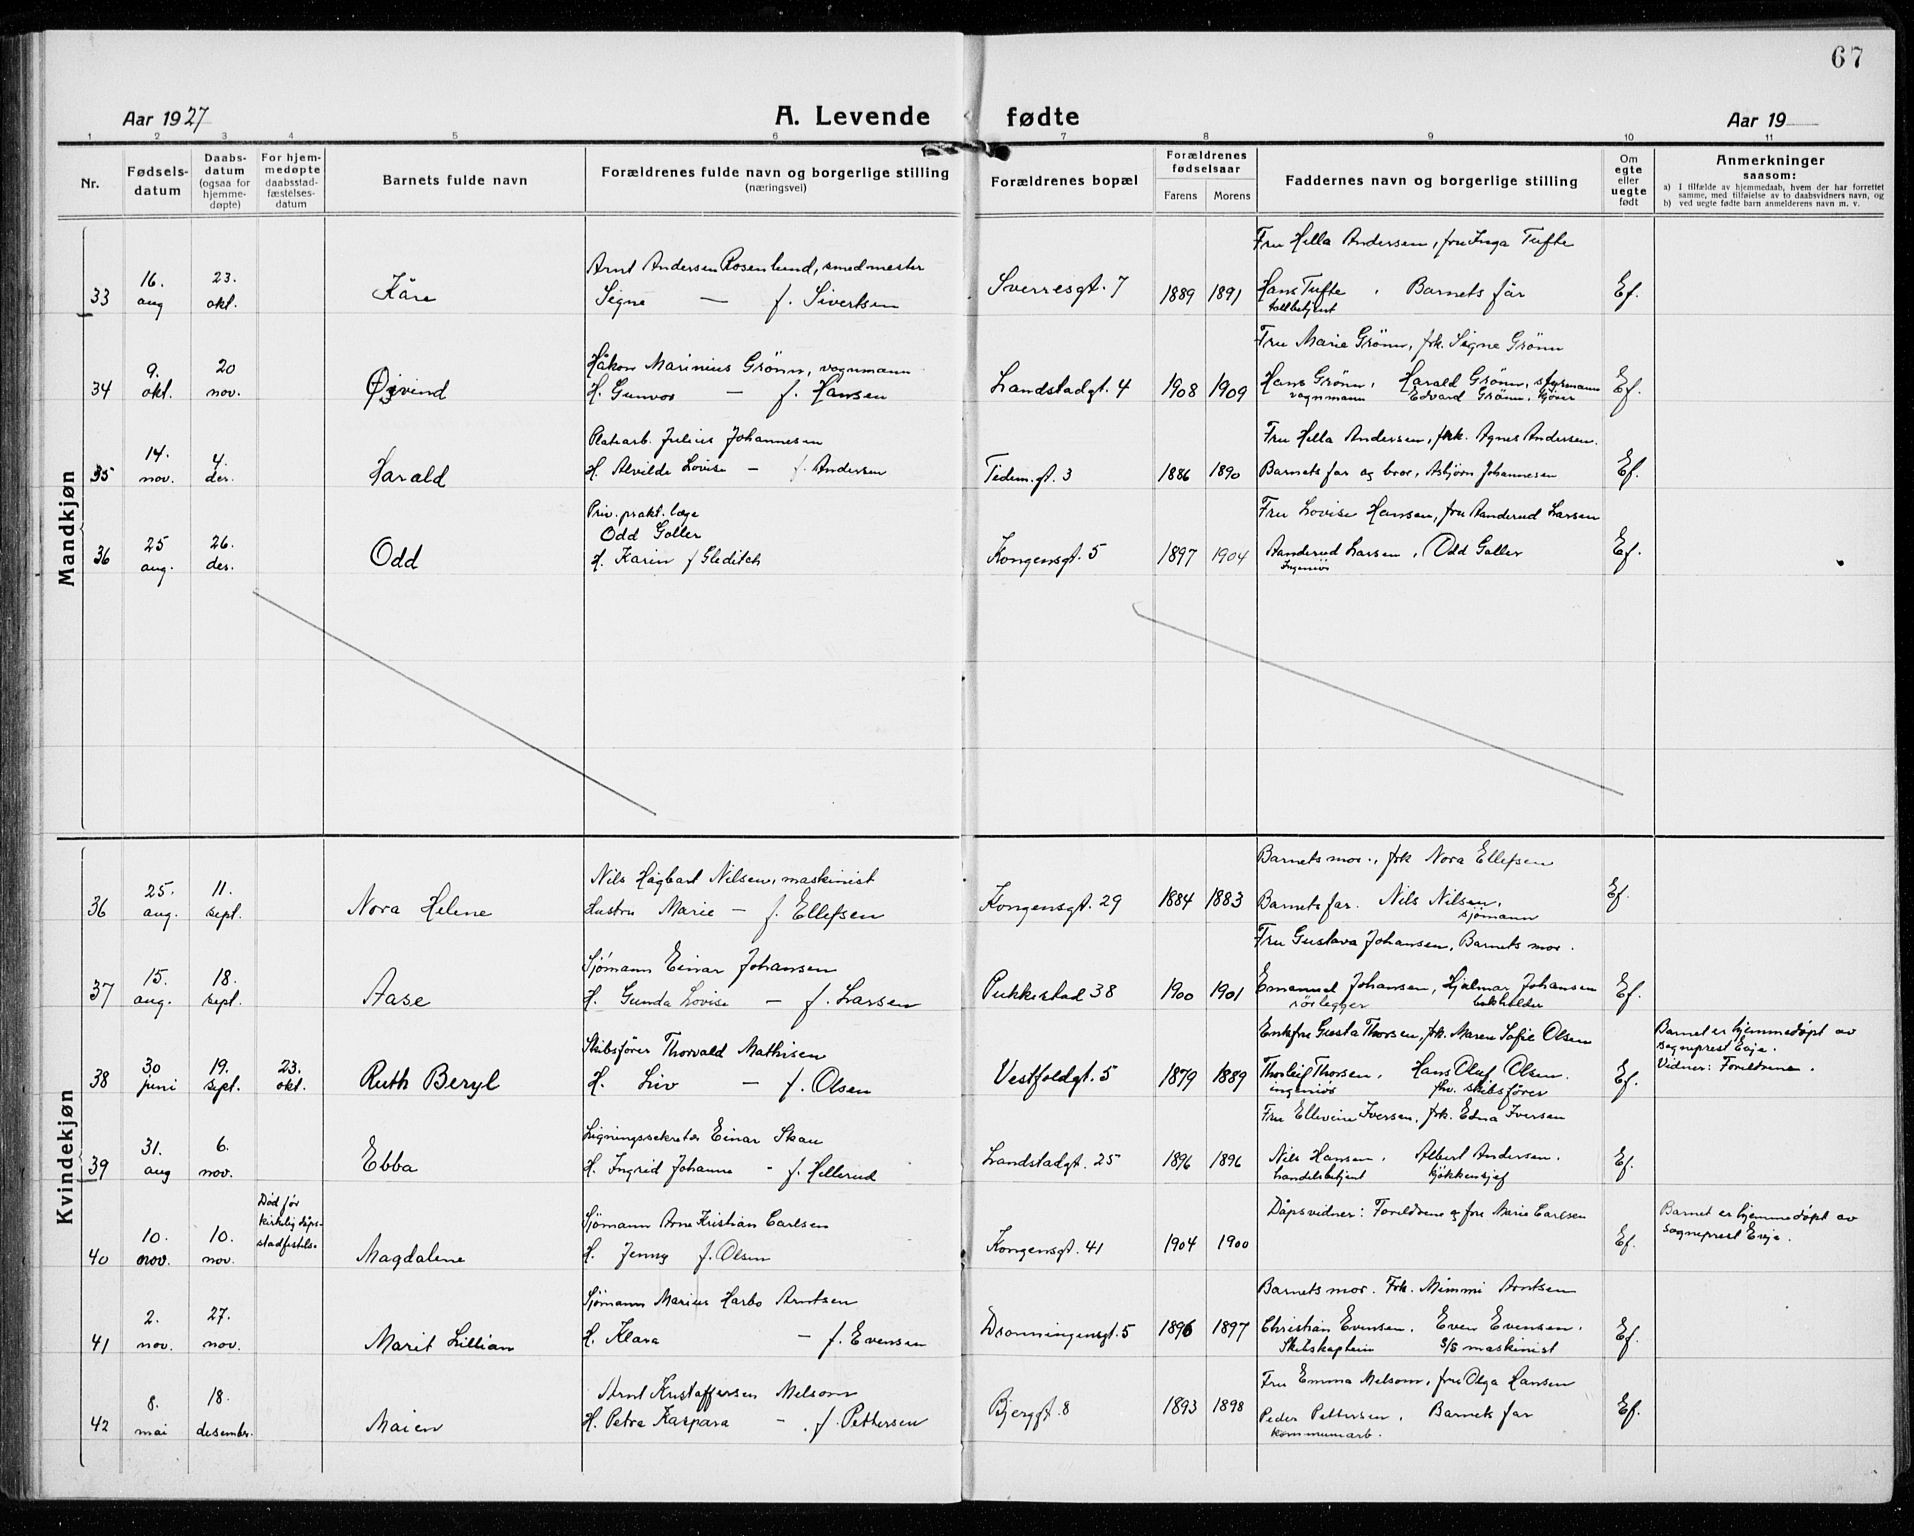 67
Aar 1927
A. Levende fødte
Aar 19
1 2 3 4 5 6 7 8 9 10 11
Nr.
Fødsels-
datum
Daabs-
datum
(ogsaa for
hjemme-
døpte)
For hjem-
medøpte
daabsstad-
fæstelses-
datum
Barnets fulde navn
Forældrenes fulde navn og borgerlige stilling
(næringsvei)
Forældrenes bopæl
Forældrenes
fødselsaar
Farens Morens
Faddernes navn og borgerlige stilling
Om
egte
eller
uegte
født
Anmerkninger
saasom:
a) I tilfælde av hjemmedaab, hvem der har forrettet
samme, med tilføielse av to daabsvidners navn, og
b) ved uegte fødte barn anmelderens navn m. v.
Mandkjøn
Fru Hella Andersen, fru Inga Tufte
Arnt Andersen Rosenlund, smedmester
33 16. aug 23. okt. Kåre Signe — f. Sivertsen Sverresgt. 7 1889 1891 Hans Tufte, Barnets får Ef.
tollbetjent
Fru Marie Grönn, frk. Signe Grönn
Håkon Marinius Grönn, vognmann
34 9. okt. 20 nov. Øjvind H. Gunvor — f. Hansen Landstadgt. 4 1908 1909 Hans Grönn, Harald Grönn, styrmann Ef.
vognmann Edvard Grönn, kjører
Platearb. Julius Johannesen
Fru Hella Andersen, frk. Agnes Andersen.
35 14. nov. 4. des. Harald H. Alvilde Lovise — f. Andersen Tidem.gt. 3 1886 1890 Barnets far og bror, Asbjörn Johannesen Ef.
Priv. prakt. læge
Fru Lovise Hansen, fru Aanderud Larsen
Odd Goller
36 25 aug. 26. des. Odd H. Karin f Gleditch Kongensgt. 5 1897 1904 Aanderud Larsen, Odd Goller Ef.
Ingeniör
Kvindekjøn
Barnets mor., frk Nora Ellefsen
Nils Hagbart Nilsen, maskinist
36 25. aug. 11. sept. Nora Helene Hustru Marie — f. Ellefsen Kongensgt. 29 1884 1883 Barnets far. Nils Nilsen, Ef.
sjömann
Fru Gustava Johansen, Barnets mor.
Sjömann Einar Johansen
37 15. aug. 18. sept. Aase H. Gunda Lovise — f. Larsen Pukkestad 38 1900 1901 Emanuel Johansen, Hjalmar Johansen Ef.
rörlegger bokholder
Enkefru Gusta Thorsen, frk. Maren Sofie Olsen
Skibsfører Thorvald Mathisen
38 30 juni 19. sept. 23. okt. Ruth Beryl H. Liv — f. Olsen Vestfoldgt. 5 1879 1889 Thorleif Thorsen, Hans Oluf Olsen. Ef.
ingeniör fhv. skibsfører
Barnet er hjemmedöpt av
sogneprest Evje.
Vidner: Foreldrene.
Fru Elleveine Iversen, frk. Edna Iversen
Ligningssekretær Einar Skau
39 31. aug 6. nov. Ebba H. Ingrid Johanne - f. Hellerud Landstadgt. 25 1896 1896 Nils Hansen, Albert Andersen. Ef.
handelsbetjent kjøkkensjef
Død før
kirkelig dåps-
stadfestels-
Sjömann Arne Kristian Carlsen
Dåpsvidner: Foreldrene og fru Marie Carlsen
40 10. nov. 10. nov. Magdalene H. Jenny f. Olsen Kongensgt. 41 1904 1900 Ef.
Barnet er hjemmedöpt av
sogneprest Evje.
Barnets mor. Frk. Mimmi Arntsen
Sjömann Marius Harbo Arntsen
41 2. nov. 27. nov. Marit Lillian H. Klara — f. Evensen Dronningensgt. 5 1896 1897 Christian Evensen. Even Evensen. Ef.
Skibskaptein S/S maskinist
Fru Emma Melsom, fru Olga Hansen
Arnt Kristoffersen Melsom
42 8. mai 18. desember. Maien H. Petra Kaspara - f. Pettersen Bjerggt. 8 1893 1898 Peder Pettersen, Barnets far Ef.
kommunearb.